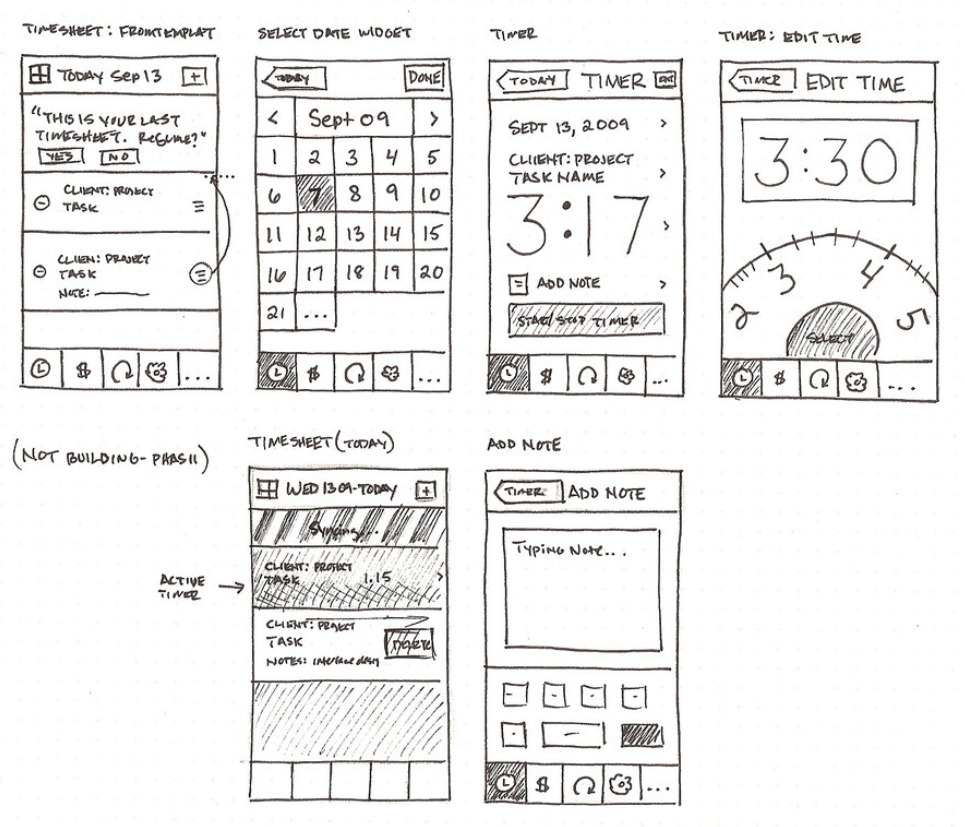 TIMESHEET: FROMTEMPLAT
TODAY Sep 13
+
"THIS IS YOUR LAST
TIMESHEET. RESUME?"
YES NO
CLIENT: PROJECT
TASK
CLIEN: PROJECT
TASK
NOTE:
$ ...
SELECT DATE WIDGET
TODAY DONE
< Sept 09 >
1 2 3 4 5
6 7 8 9 10
11 12 13 14 15
16 17 18 19 20
21 ...
$ ...
TIMER
TODAY TIMER
SEPT 13, 2009 >
CLIENT: PROJECT
TASK NAME >
3:17 >
ADD NOTE >
START/STOP TIMER
$ ...
TIMER: EDIT TIME
TIMER EDIT TIME
3:30
2 3 4 5
SELECT
$ ...
(NOT BUILDING - PHASE II)
TIMESHEET (TODAY)
WED 13 09-TODAY +
Syncing...
ACTIVE
TIMER
CLIENT: PROJECT
TASK 1.15 >
CLIENT: PROJECT
TASK DELETE
NOTES: Interface design
ADD NOTE
TIMER ADD NOTE
Typing Note...
$ ...